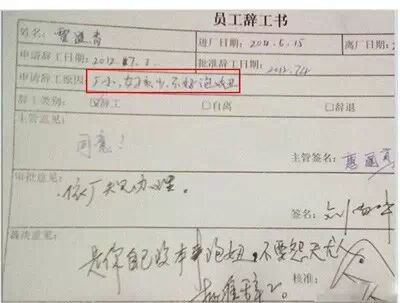 员工辞工书
姓名: 进厂日期:2012.6.15 离厂日期
申请辞工日期:2012.7.3. 批准辞工日期:2012.7.4
申请辞工原因 厂小,女孩少,不好泡妞
辞工类别: ☑辞工 □自离 □辞退
主管意见:
同意!
主管签名:
审批意见:
依厂规办理。
签名:
裁决意见:
是你自己没本事泡妞,不要怨天尤人
批准辞工。 核准: